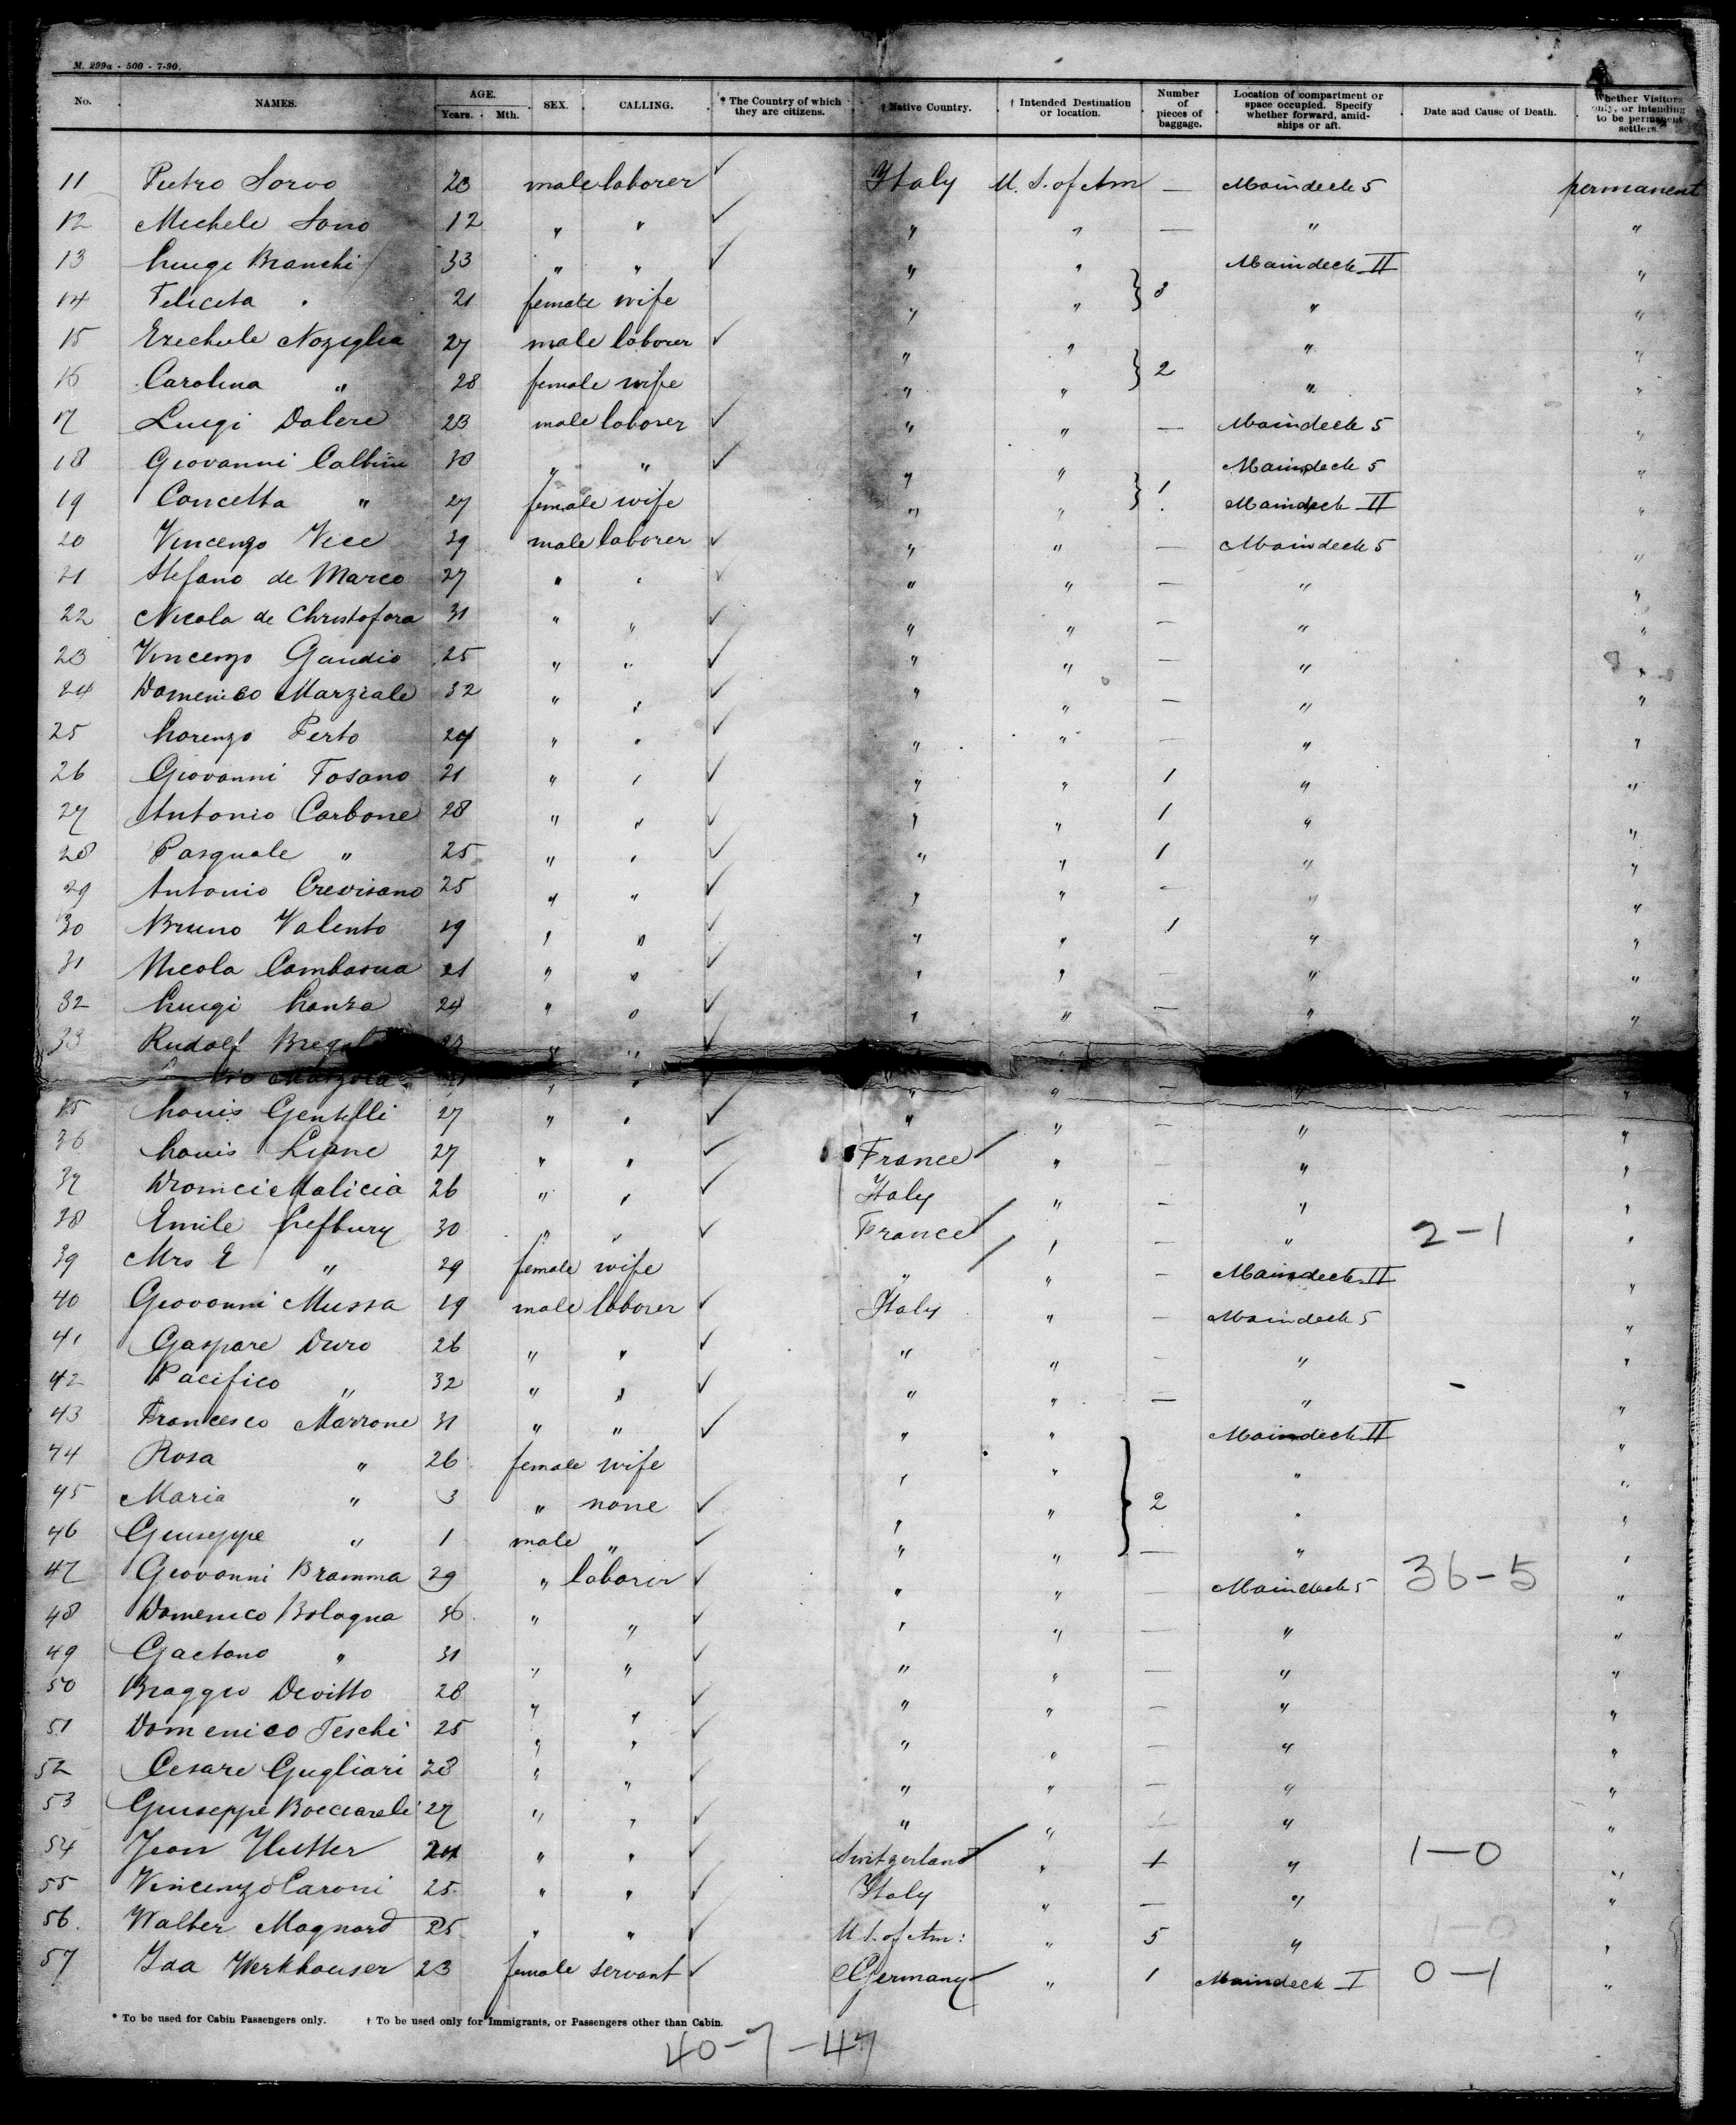 M. 299a - 500 - 7-90.
No. NAMES. AGE. Years. Mth. SEX. CALLING. * The Country of which they are citizens. † Native Country. † Intended Destination or location. Number of pieces of baggage. Location of compartment or space occupied. Specify whether forward, amidships or aft. Date and Cause of Death. Whether Visitors only, or intending to be permanent settlers.
11 Pietro Sorvo 23 male laborer ✓ Italy U. S. of Am — Maindeck 5 permanent
12 Michele Sorvo 12 " " ✓ " " — " "
13 Luigi Bianchi 33 " " ✓ " " Maindeck II "
14 Feliceta " 21 female wife " " } 3 " "
15 Ezechiele Noziglia 27 male laborer ✓ " " " "
16 Carolina " 28 female wife " " } 2 " "
17 Luigi Dalere 23 male laborer ✓ " " — Maindeck 5 "
18 Giovanni Calbini 30 " " ✓ " " Maindeck 5 "
19 Concetta " 27 female wife " " } 1 Maindeck II "
20 Vincenzo Vice 39 male laborer ✓ " " — Maindeck 5 "
21 Stefano de Marco 27 " " ✓ " " — " "
22 Nicola de Christofora 31 " " ✓ " " — " "
23 Vincenzo Gaudio 25 " " ✓ " " — " "
24 Domenico Marziale 32 " " ✓ " " — " "
25 Lorenzo Perto 29 " " ✓ " " — " "
26 Giovanni Tosano 21 " " ✓ " " 1 " "
27 Antonio Carbone 28 " " ✓ " " 1 " "
28 Pasquale " 25 " " ✓ " " 1 " "
29 Antonio Crevisano 25 " " ✓ " " — " "
30 Bruno Valento 19 " " ✓ " " 1 " "
31 Nicola Cambasua 21 " " ✓ " " — " "
32 Luigi Lanza 24 " " ✓ " " — " "
33 Rudolf " " ✓
" " ✓ " " — " "
35 Louis Gentilli 27 " " ✓ " " — " "
36 Louis Liane 27 " " ✓ France " — " "
37 Malicia 26 " " ✓ Italy " — " "
38 Emile Lefbury 30 " " ✓ France " — " 2-1 "
39 Mrs E " 29 female wife " " — Maindeck II "
40 Giovanni Mussa 19 male laborer ✓ Italy " — Maindeck 5 "
41 Gaspare Duro 26 " " ✓ " " — " "
42 Pacifico " 32 " " ✓ " " — " "
43 Francesco Marrone 31 " " ✓ " " Maindeck II "
44 Rosa " 26 female wife " " " "
45 Maria " 3 " none ✓ " " } 2 " "
46 Giuseppe " 1 male " ✓ " " — " "
47 Giovanni Bramma 29 " laborer ✓ " " — Maindeck 5 36-5 "
48 Domenico Bologna 36 " " ✓ " " — " "
49 Gaetano " 31 " " ✓ " " — " "
50 Biaggio Devitto 28 " " ✓ " " — " "
51 Domenico Teschi 25 " " ✓ " " — " "
52 Cesare Gugliari 28 " " ✓ " " — " "
53 Giuseppe Bocciareli 27 " " ✓ " " — " "
54 Jean Hutter 24 " " ✓ Switzerland " 1 " 1-0 "
55 Vincenzo Caroni 25 " " ✓ Italy " — " "
56 Walter Magnard 25 " " ✓ U. S. of Am: " 5 " 1-0 "
57 Ida Werkhauser 23 female servant ✓ Germany " 1 Maindeck I 0-1 "
* To be used for Cabin Passengers only. † To be used only for Immigrants, or Passengers other than Cabin.
40-7-47